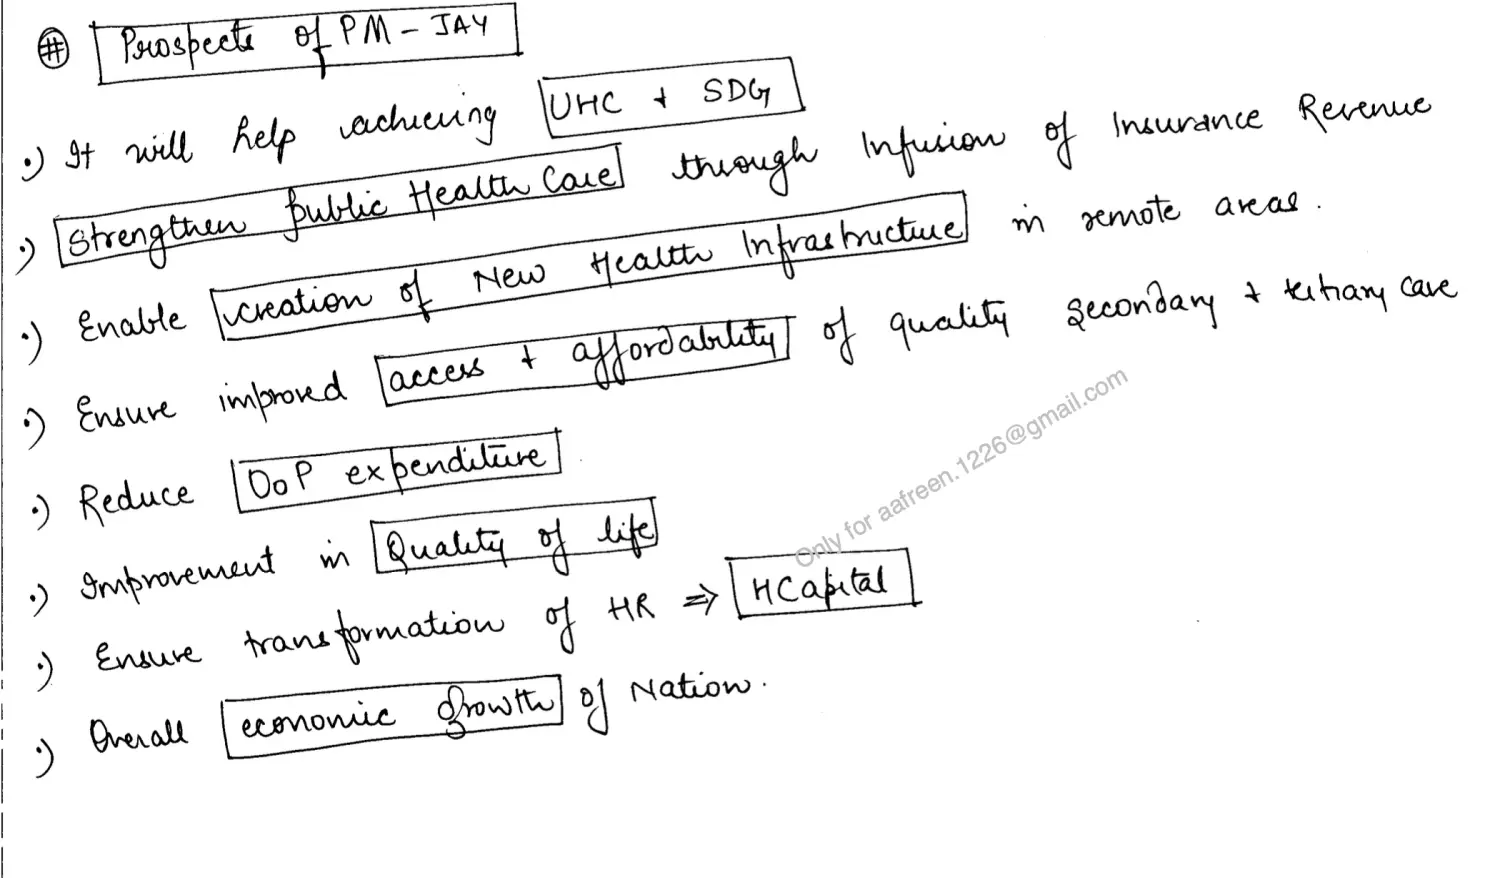 # Prospects of PM-JAY
·) It will help achieving UHC + SDG
·) Strengthen public Health Care through Infusion of Insurance Revenue
·) Enable creation of New Health Infrastructure in remote areas.
·) Ensure improved access + affordability of quality secondary + tertiary care
·) Reduce OoP expenditure
·) Improvement in Quality of life
·) Ensure transformation of HR ⇒ HCapital
·) Overall economic growth of Nation.
Only for aafreen.1226@gmail.com